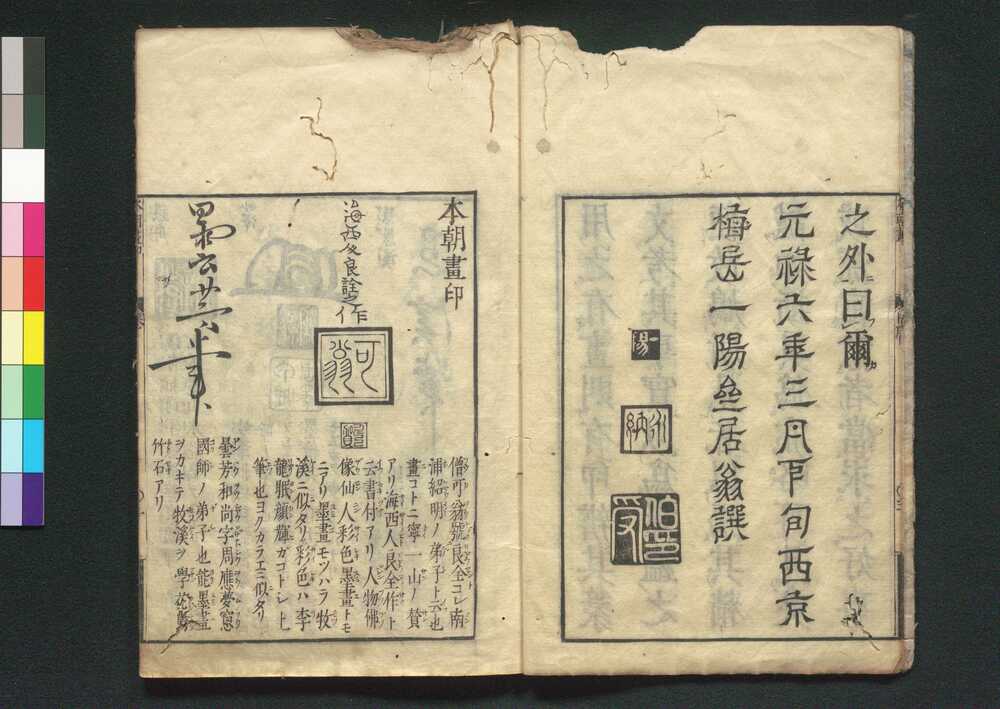 之外曰爾
元祿六年三月下旬西京
梅岳一陽𡉏居翁譔
一陽
永納
伯受
本朝畫印
海西人良詮作
可翁
曇芳筆
僧可翁號良全コレ南
浦紹明ノ弟子ト云也
畫コトニ寧一山ノ賛
アリ海西人良全作ト
云書付アリ人物佛
像仙人彩色墨畫トモ
ニアリ墨畫モツハラ牧
溪ニ似タリ彩色ハ李
龍眠顔輝ガコトシ上
筆也ヨクカラエニ似タリ
曇芳和尚字周應夢窓
國師ノ弟子也能墨畫
ヲカキテ牧溪ヲ學花鳥
竹石アリ